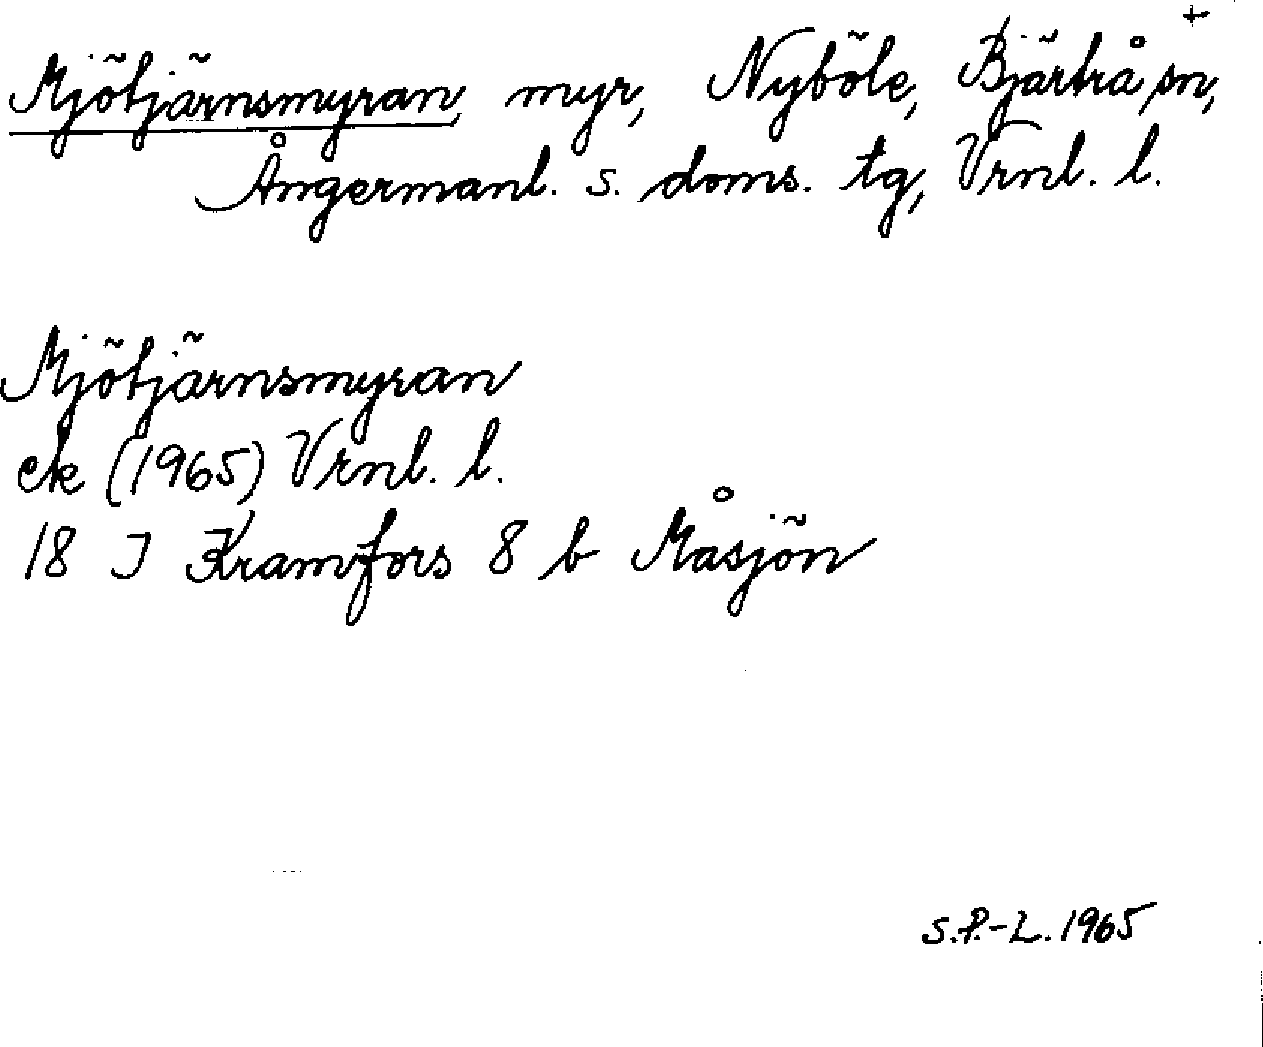 +
Mjötjärnsmyran, myr, Nyböle, Bjärtrå sn,
Ångermanl. s. doms. tg, Vrnl. l.
Mjötjärnsmyran
ek (1965) Vrnl. l.
18 J Kramfors 8 b Måsjön
S.P.-L. 1965